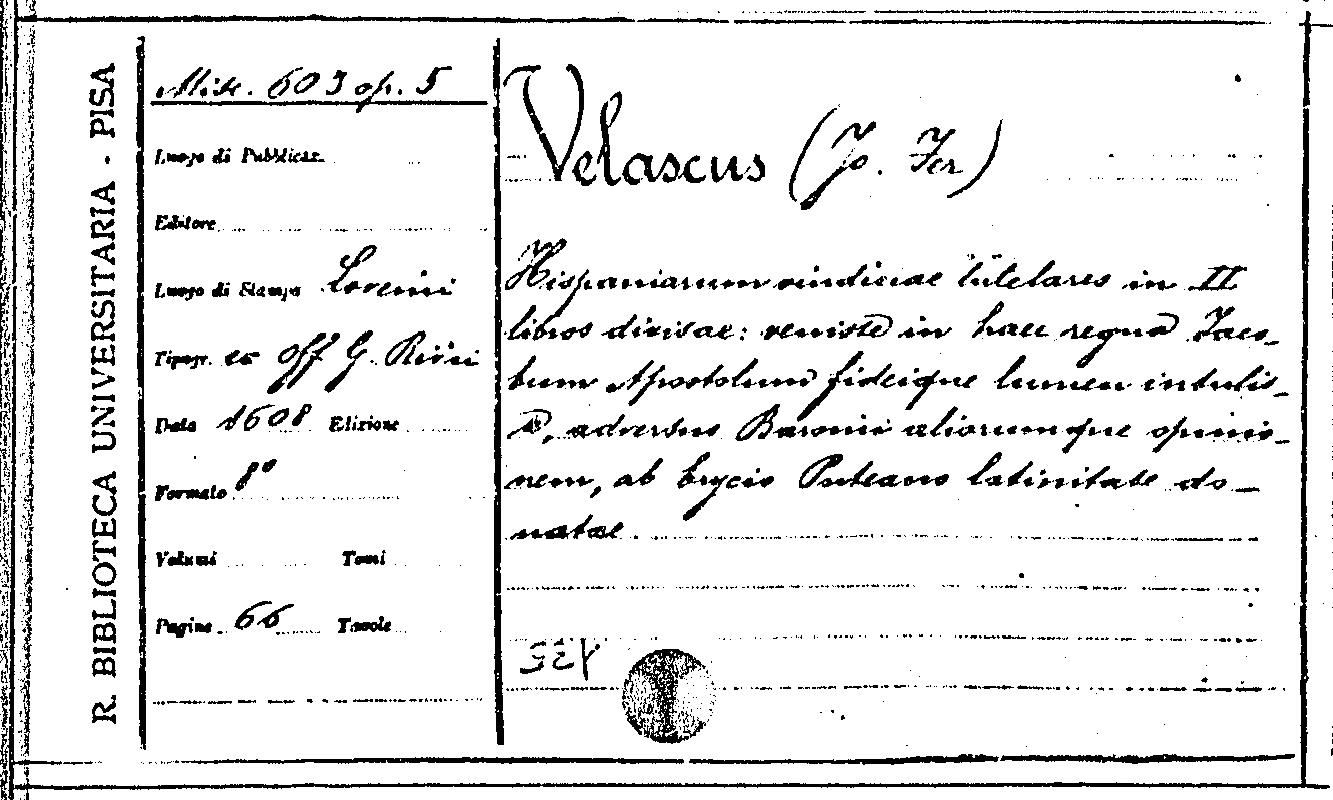 R. BIBLIOTECA UNIVERSITARIA - PISA
Misc. 603 op. 5
Luogo di Pubblicaz.
Editore
Luogo di Stampa Lovenii
Tipogr. ex off G. Rivii
Data 1608 Edizione
Formato 8°
Volumi Tomi
Pagine 66 Tavole
Velascus (Jo. Fer)
Hispaniarum vindiciae tutelares in II
libros divisae: venisse in haec regna Jaco-
bum Apostolum fideique lumen intulis-
adversus Baronii aliorumque opinio-
nem, ab Erycio Puteano latinitate do-
natae.